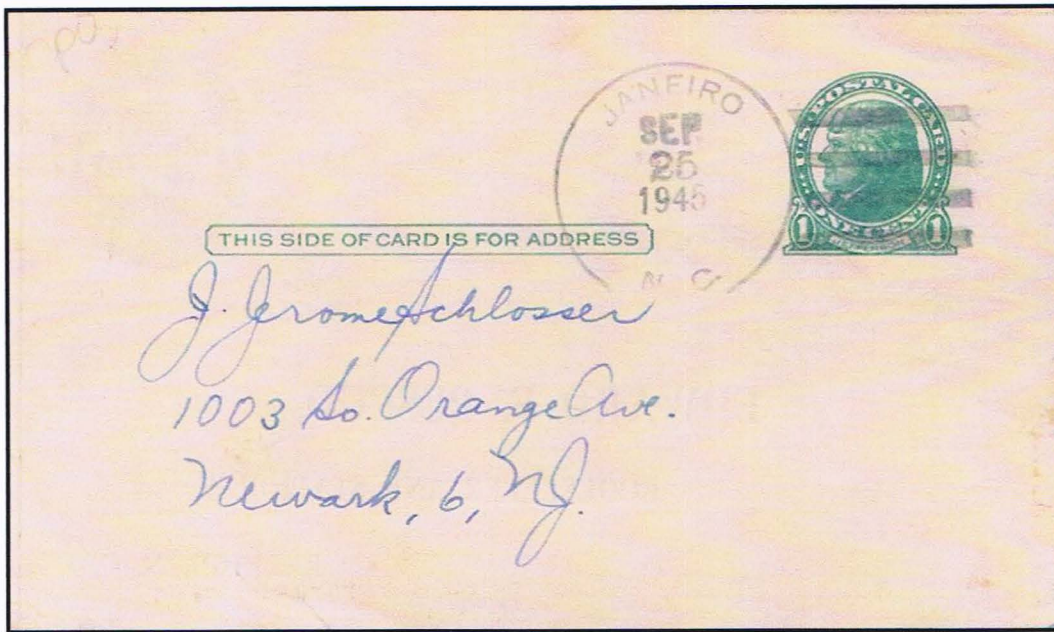 JANEIRO
SEP
25
1945
N. C.
U.S. POSTAL CARD
1 ONE CENT 1
THIS SIDE OF CARD IS FOR ADDRESS
J. Jerome Schlosser
1003 So. Orange Ave.
Newark, 6, NJ.